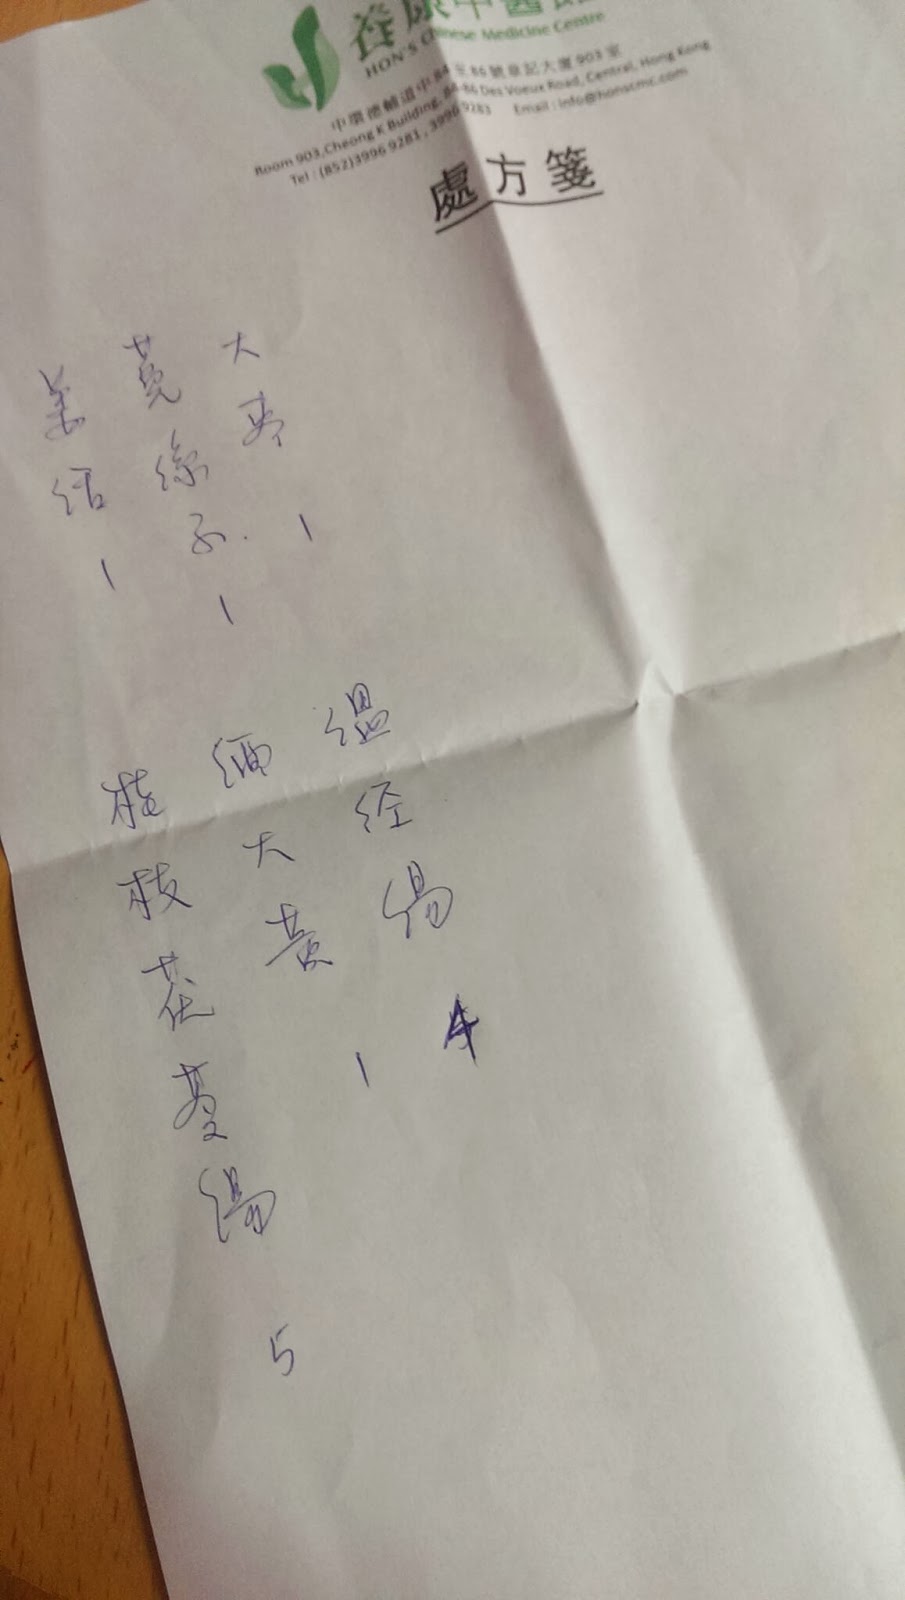 養康中醫館
HON'S Chinese Medicine Centre
中環德輔道中84至86號章記大廈903室
Room 903,Cheong K Building, 84-86 Des Voeux Road, Central, Hong Kong
Tel : (852)3996 9281 , 3996 9283 Email : info@honscmc.com
處方箋
大枣 1
菟絲子 1
羌活 1
温经汤 4
酒大黄 1
桂枝茯苓汤 5